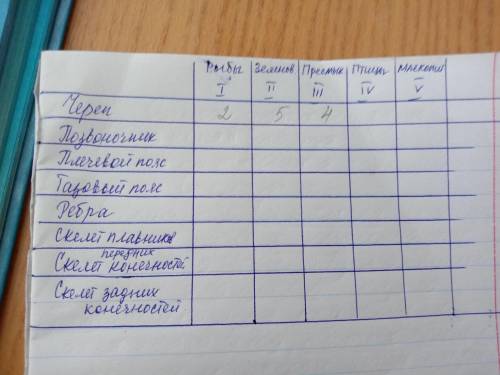 Рыбы Земнов Пресмык Птицы Млекопит
I II III IV V
Череп 2 5 4
Позвоночник
Плечевой пояс
Тазовый пояс
Ребра
Скелет плавников
передних
Скелет конечностей
Скелет задних
конечностей